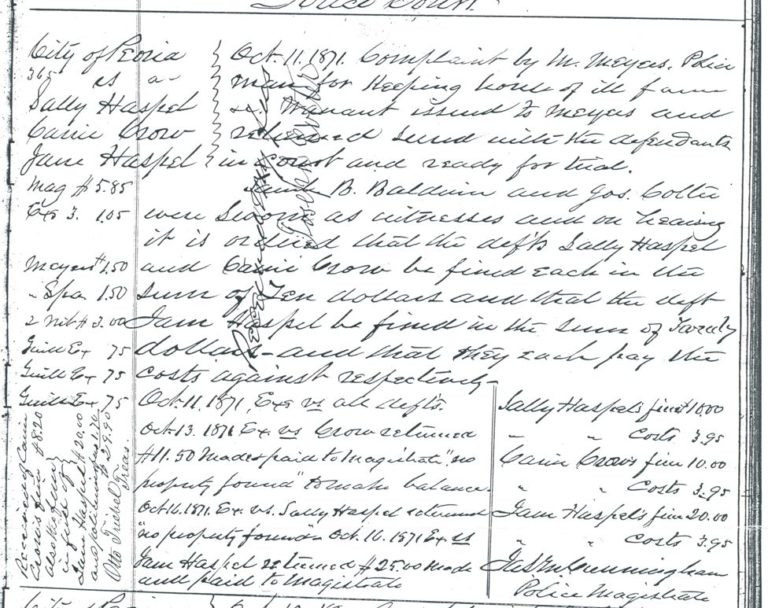 Police Court.
City of Peoria
365 vs
Sally Haspel
Carrie Crow
Jane Haspel
Mag $5.85
Exs 3. 1.05
Meyers $1.50
" Spa 1.50
2 Wit $1.00
75
75
75
Oct. 11. 1871. Complaint by M. Meyers. Police
man for Keeping house of ill fame
Warrant issued to Meyers and
returned served with the defendants
in court and ready for trial.
B. Baldwin and Jos. Cotter
were sworn as witnesses and on hearing
it is ordered that the defts Sally Haspel
and Carrie Crow be fined each in the
sum of Ten dollars and that the deft
Jane Haspel be fined in the sum of Twenty
dollars and that they each pay the
costs against respectively
Oct. 11. 1871, Exs vs all defts.
Oct. 13. 1871 Ex vs Crow returned
$11.50 Made & paid to Magistrate "no
property found" to make balance.
Oct 16. 1871. Ex. vs. Sally Haspel returned
"no property found" Oct. 16. 1871 Ex vs
Jane Haspel returned $25.00 Made
and paid to Magistrate
Sally Haspels fine $10.00
" " Costs 3.95
Carrie Crows fine 10.00
" " Costs 3.95
Jane Haspels fine 20.00
" " Costs 3.95
Jas M Cunningham
Police Magistrate
Received of Carrie
Crow's fine $8.20
also the fine
in full of
Jane Haspel $20.00
$29.95
Otto Triebel
Treas.
City of Peoria